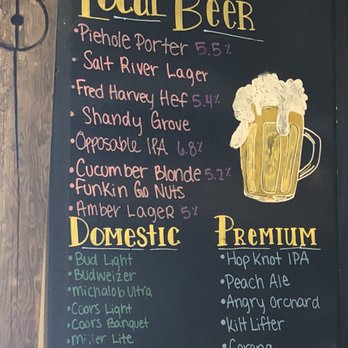 Local Beer
•Piehole Porter 5.5%
• Salt River Lager
•Fred Harvey Hef 5.4%
• Shandy Grove
•Opposable IPA 6.8%
•Cucumber Blonde 5.2%
•Funkin Go Nuts
•Amber Lager 5%
Domestic
• Bud Light
• Budweizer
• Michalob Ultra
• Coors Light
• Coors Banquet
• Miller Lite
Premium
•Hop Knot IPA
•Peach Ale
•Angry Orchard
•Kilt Lifter
•Corona